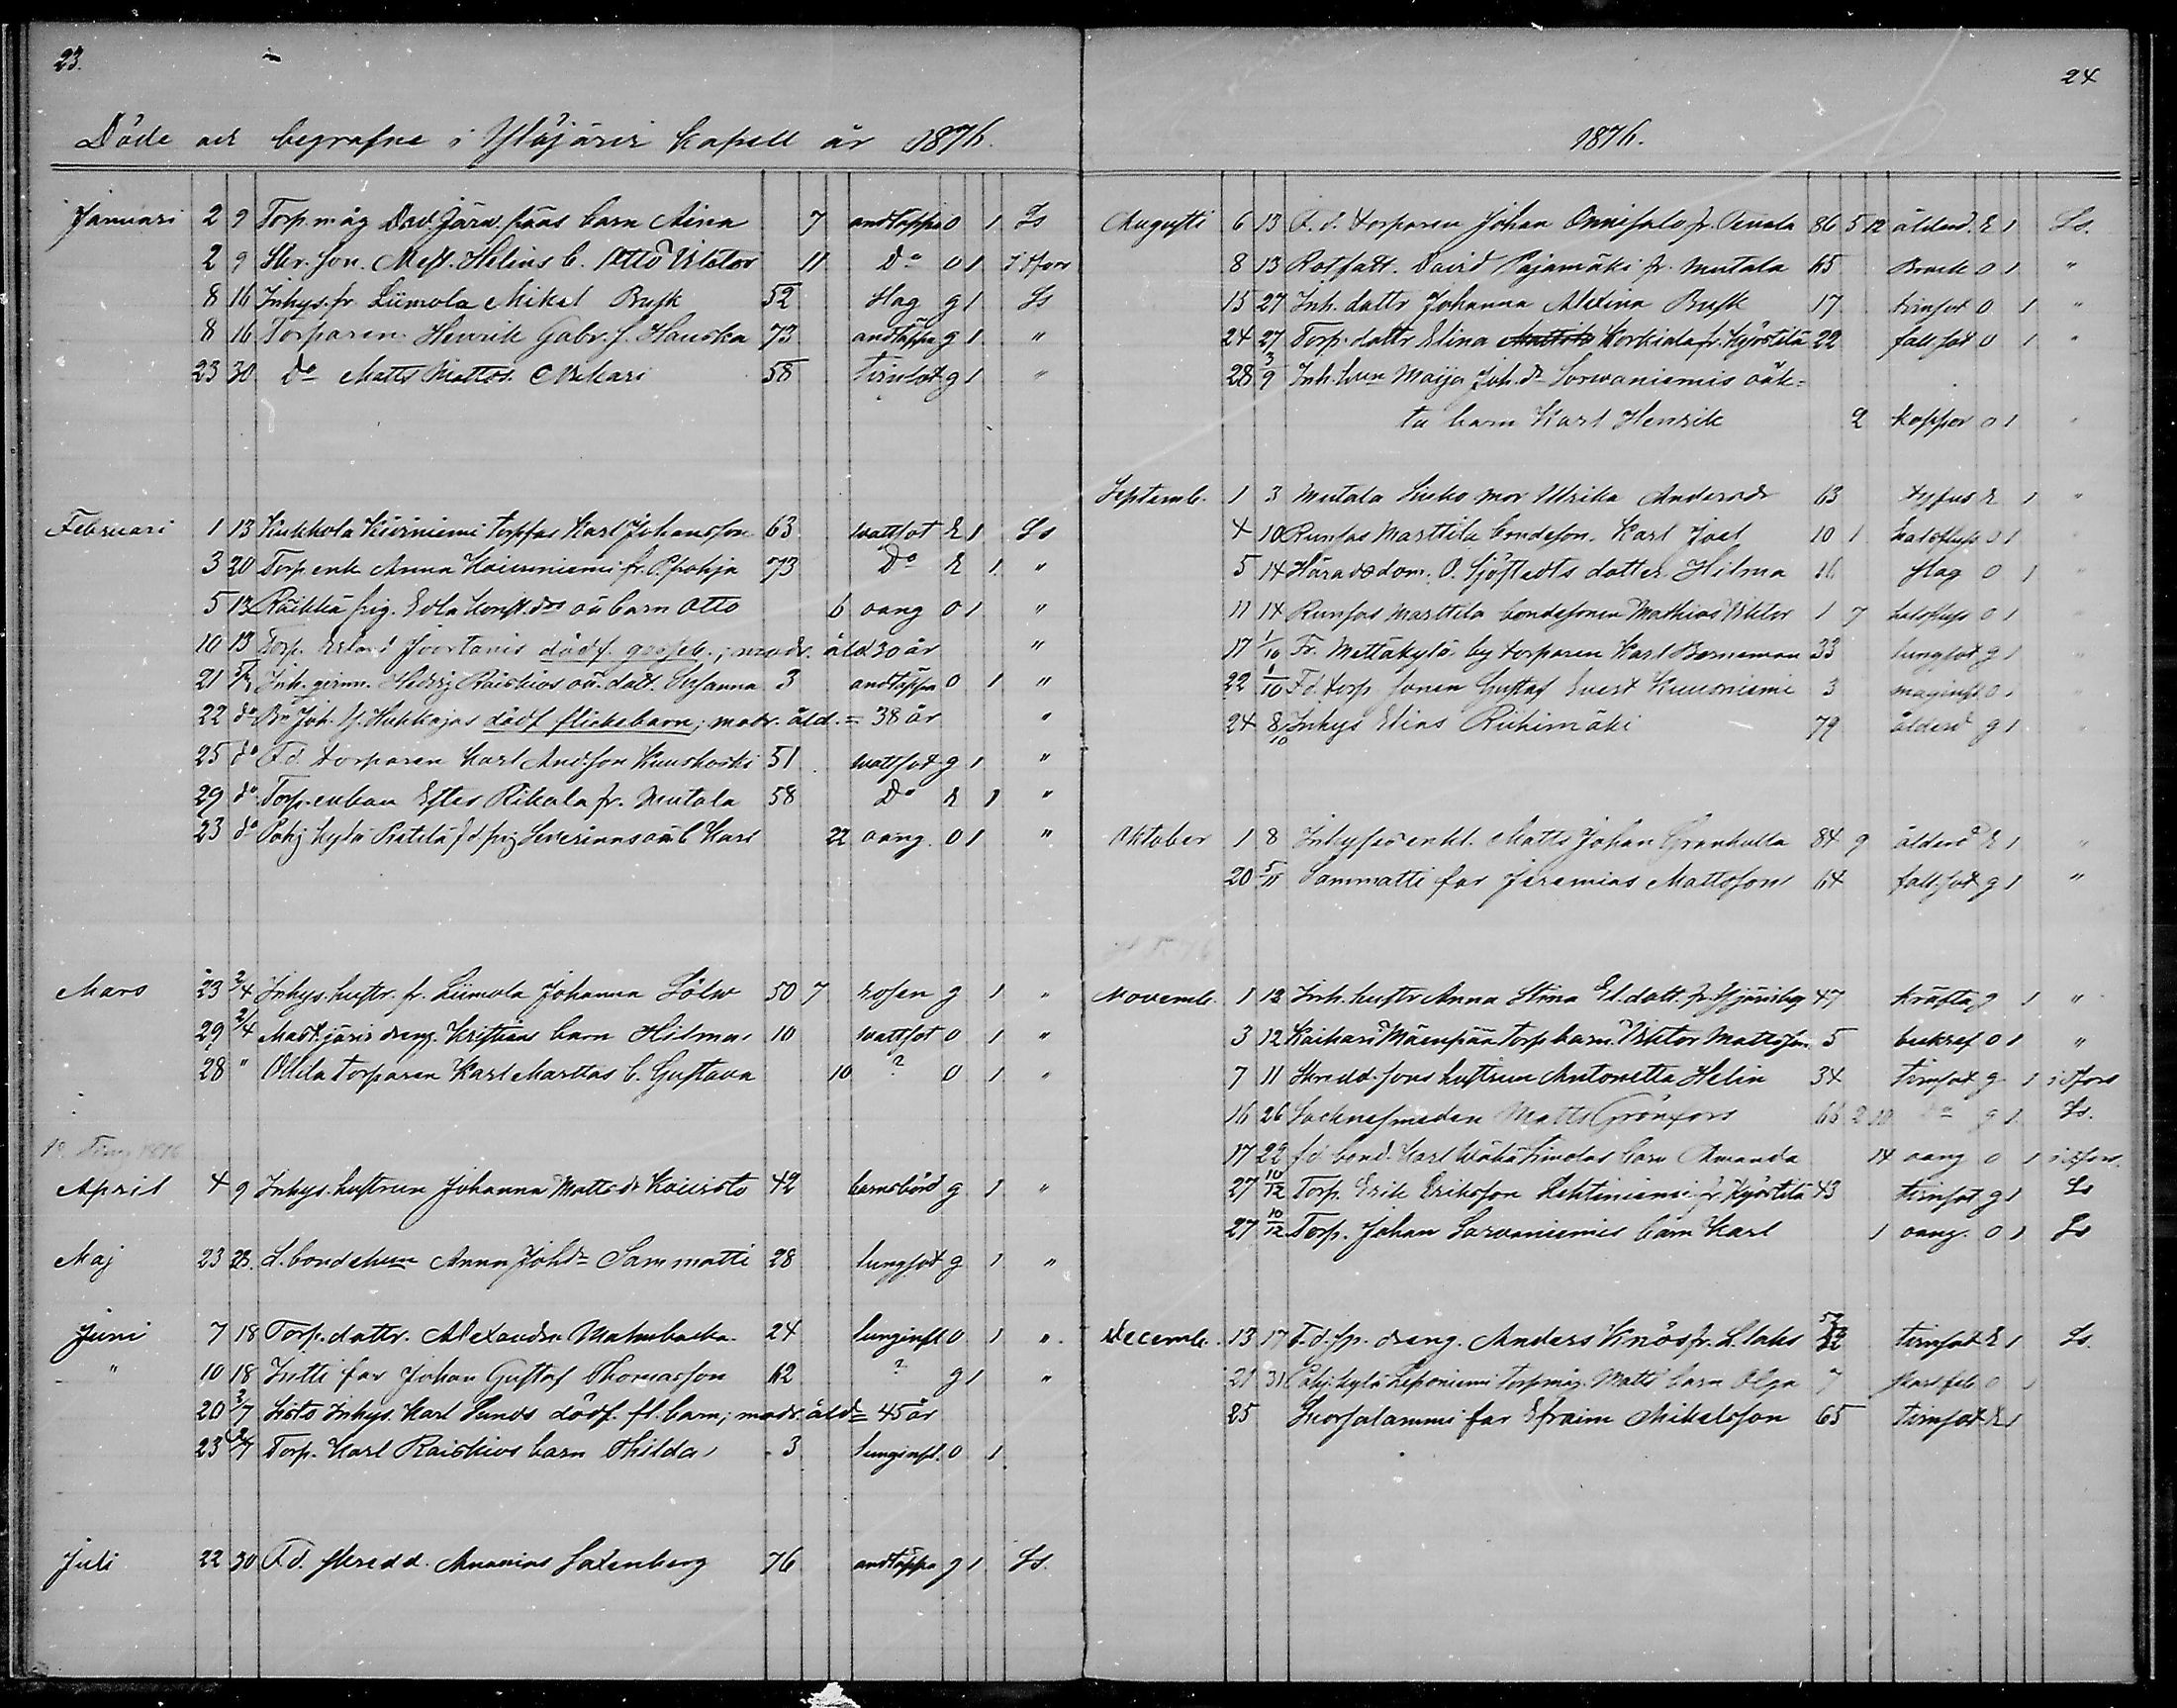 23.
Döde och begrafne i Ylöjärvi Kapell år 1876.
Januari 2 9 Torp. måg Dav. Järv. pääs barn Aina 7 andtäppa 0 1 Ls
2 9 Skr. son. Mest. Helins b. Otto Viktor 11 Do 0 1 i Tfors
8 16 Inhys. fr. Liimola Mikel Busk 52 slag g 1 Ls
8 16 Torparen Henrik Gabr. s. Hauska 73 andtäppa g 1 "
23 30 Do Matts Matts. 58 tärnsot g 1 "
Februari 1 13 Kukkola Kiürniemi torpfar Karl Johansson 63 vattsot E 1 Ls
3 20 Torp enk Anna Koiviniemi fr. P. pohja 73 Do E 1 "
5 13 Räikkä pig. Edla Konst.dr oä barn Otto 6 oang 0 1 "
10 13 Torp. Erland Joortanis dödf. gosseb.; modr. åld 30 år "
21 5/3 Inh. qvinn. Hedvig Raiskios oä. dott. Susanna 3 andtäppa 0 1 "
22 do Bn Joh. Y. Hukkajas dödf flickebarn; modr. åld. = 38 år "
25 do F.d. torparen Karl And.son Kuuskoski 51 vattsot g 1 "
29 do Torp. enkan Ester Rikala fr. Mutala 58 Do E 1 "
23 do Pohj kylä Pietilä fd pig Severinas oä b Karl 22 oang. 0 1 "
Mars 23 2/4 Inhys. hustr. fr. Liimola Johanna Sölw 50 7 rosen g 1 "
29 2/4 Mast.järvi dreng. Kristians barn Hilma 10 vattsot 0 1 "
28 " Ollila torparen Karl Marttas b. Gustava 10 ? 0 1 "
April 4 9 Inhys. hustrun Johanna Matts dr Koivisto 42 barnsbörd g 1 "
Maj 23 28. L. bondehun Anna Johdr Sammatti 28 lungsot g 1 "
Juni 7 18 Torp. dottr. Alexandra Malmbacka 24 lunginfl. 0 1 "
" 10 18 Intti far Johan Gustaf Thomasson 62 ? g 1 "
20 2/7 Inhys. Karl Lunds dödf. fl. barn; modr. åld = 45 år
23 2/7 Torp. Karl Raiskios barn Thilda 3 lunginfl. 0 1
Juli 22 30 F.d. skredd. Ananias Saxenberg 76 andtäppa g 1 Ls.
24
1876.
Augusti 6 13 F. d. torparen Johan Onnisalo fr. Penala 86 5 12 ålderd. E 1 Ls.
8 13 Rotfatt. David Pajamäki fr. Mutala 65 Brock 0 1 "
15 27 Inh. dottr Johanna Alexina Busk 17 tvinsot 0 1 "
24 27 Torp. dottr Elina Korkiala fr. Kyöstilä 22 fallsot 0 1 "
28 3/9 Inh. hun Maija Joh. dr Sorvaniemis oäk=
ta barn Karl Henrik 2 koppor 0 1 "
Septemb. 1 3 Mutala Sisko mor Ulrika Andersdr 63 tyfus E 1 "
4 10 Runsas Marttila bondeson. Karl Joel 10 1 0 1 "
5 14 Häradsdom. O. Sjöstedts dotter Hilma 16 slag 0 1 "
11 14 Runsas Marttila bondesonen Mathias Viktor 1 7 0 1 "
17 1/10 Fr. Mettäkylä by torparen Karl Borneman 33 lungsot g 1 "
22 1/10 F.d. torp sonen Gustaf Evert Kuusniemi 3 0 1 "
24 8/10 Inhys Elias Riihimäki 79 ålderd g 1 "
Oktober 1 8 Inhyses enkl. Matts Johan Grankulla 84 9 ålderd E 1 "
20 5/11 Sammatti far Jeremias Mattsson 64 fallsot g 1 "
Novemb. 1 12 Inh. hustr Anna Stina El. dott. 47 kräfta g 1 "
3 12 Kaihari Mäenpää torp barn Viktor Mattsson 5 bukref 0 1 "
7 11 Skredd. sons hustrun Antonetta Helin 34 tvinsot g 1 i Tfors
16 26 Socknesmeden Matts Grönfors 66 2 10 Do g 1 Ls.
17 22 f d bond. Karl Wähä Simolas barn Amanda 14 oang 0 1 i Tfors.
27 10/12 Torp. Erik Eriksson Lehtiniemi fr. Kyöstilä 43 tvinsot g 1 Ls
27 10/12 Torp. Johan Sorvaniemis barn Karl 1 oang. 0 1 Ls
Decemb. 13 17 F. d. sp. dreng. Anders Knös fr. L. laks 52 tvinsot E 1 Ls.
21 31 Pohj. kylä Leponiemi torp måg. Matts barn Olga 7 skarl.feb 0 1
25 far Efraim Mikelsson 65 tvinsot E 1